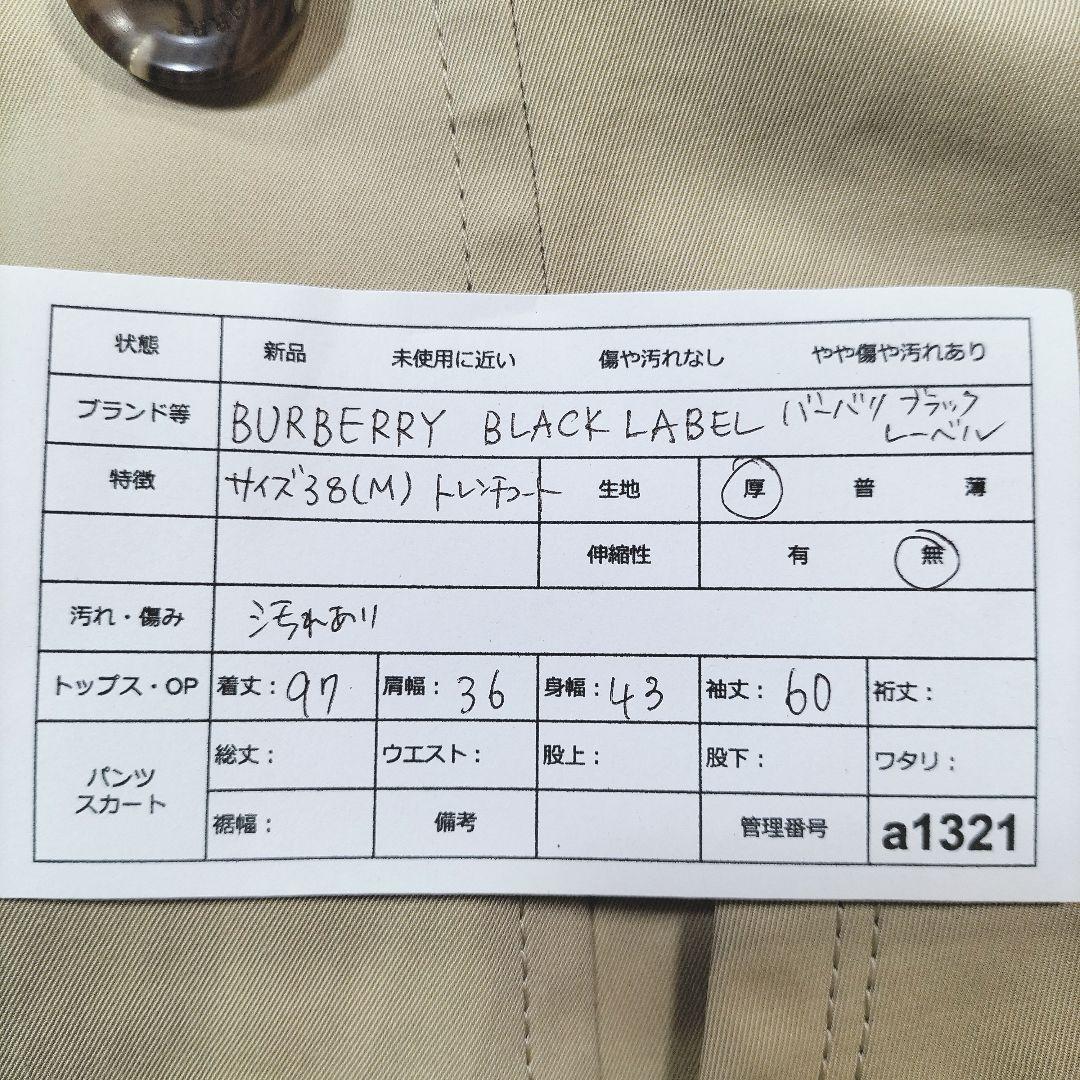 状態 新品 未使用に近い 傷や汚れなし やや傷や汚れあり
ブランド等 BURBERRY BLACK LABEL バーバリ ブラック
レーベル
特徴 サイズ38(M) トレンチコート 生地 厚 普 薄
伸縮性 有 無
汚れ・傷み 汚れあり
トップス・OP 着丈：97 肩幅：36 身幅：43 袖丈：60 裄丈：
パンツ
スカート
総丈： ウエスト： 股上： 股下： ワタリ：
裾幅： 備考 管理番号 a1321